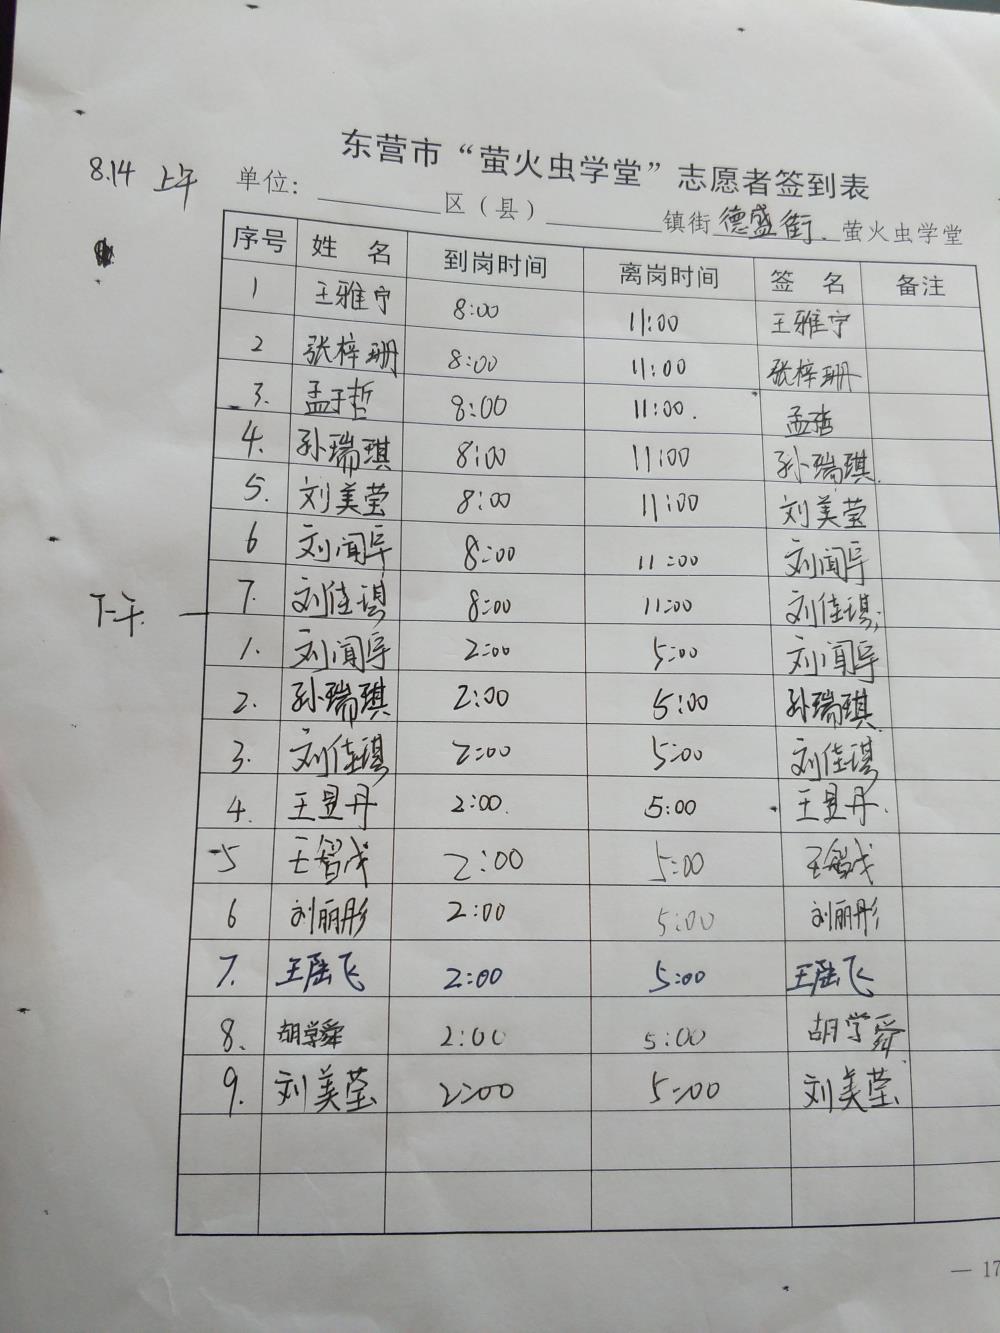 东营市“萤火虫学堂”志愿者签到表
8.14 上午
单位: 区（县） 镇街 德盛街 萤火虫学堂
序号 姓 名 到岗时间 离岗时间 签 名 备注
1 王雅宁 8:00 11:00 王雅宁
2 张梓珊 8:00 11:00 张梓珊
3. 孟于哲 8:00 11:00. 孟
4. 孙瑞琪 8:00 11:00 孙瑞琪
5. 刘美莹 8:00 11:00 刘美莹
6 刘闻宇 8:00 11:00 刘闻宇
7. 刘佳琪 8:00 11:00 刘佳琪
下午.
1. 刘闻宇 2:00 5:00 刘闻宇
2. 孙瑞琪 2:00 5:00 孙瑞琪
3. 刘佳琪 2:00 5:00 刘佳琪
4. 王昱丹 2:00. 5:00 王昱丹.
5 王智 2:00 5:00 王智
6 刘丽彤 2:00 5:00 刘丽彤
7. 王 飞 2:00 5:00 王 飞
8. 胡学舜 2:00 5:00 胡学舜
9. 刘美莹 2:00 5:00 刘美莹
— 17